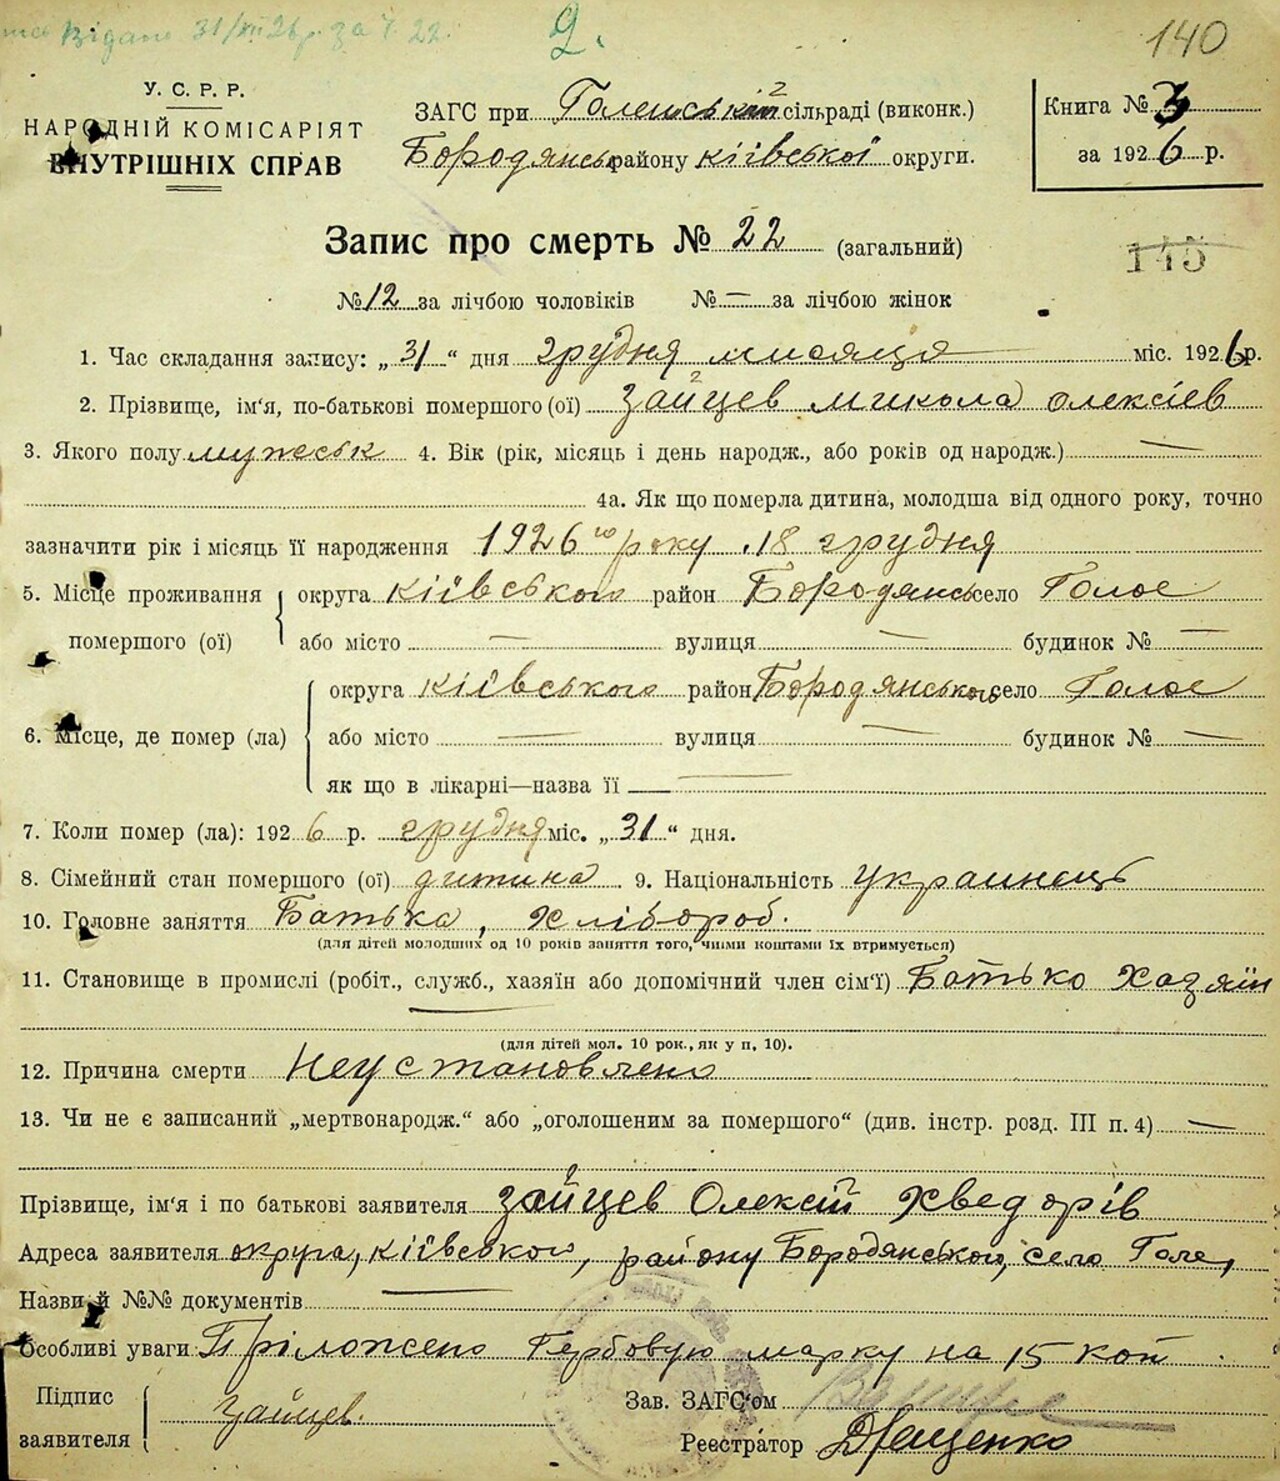 Видано 31/XII 26 р. за Ч. 22.
2.
140
У. С. Р. Р.
НАРОДНІЙ КОМІСАРІЯТ
ВНУТРІШНІХ СПРАВ
ЗАГС при Голенській сільраді (виконк.)
Бородянськ району Київської округи.
Книга № 3
за 1926 р.
Запис про смерть № 22 (загальний)
145
№ 12 за лічбою чоловіків № — за лічбою жінок
1. Час складання запису: „31“ дня грудня мисяця міс. 1926 р.
2. Прізвище, ім‘я, по-батькові помершого (ої) Зайцев Микола Олексіев
3. Якого полу мужеськ 4. Вік (рік, місяць і день народж., або років од народж.) —
4а. Як що померла дитина, молодша від одного року, точно
зазначити рік і місяць її народження 1926 го року 18 грудня
5. Місце проживання помершого (ої) округа Київського район Бородянськ село Голое
або місто — вулиця — будинок № —
6. Місце, де помер (ла) округа Київського район Бородянського село Голое
або місто — вулиця — будинок № —
як що в лікарні—назва її —
7. Коли помер (ла): 1926 р. грудня міс. „31“ дня.
8. Сімейний стан помершого (ої) дитина 9. Національність Украинець
10. Головне заняття Батька, хлібороб.
(для дітей молодших од 10 років заняття того, чиїми коштами їх втримується)
11. Становище в промислі (робіт., служб., хазяїн або допомічний член сім‘ї) Батько Хазяїн
(для дітей мол. 10 рок., як у п. 10).
12. Причина смерти Неустановлено
13. Чи не є записаний „мертвонародж.“ або „оголошеним за помершого“ (див. інстр. розд. III п. 4) —
Прізвище, ім‘я і по батькові заявителя Зайцев Олексій Хведорів
Адреса заявителя округа, Київського, району Бородянського, село Голе,
Назви й №№ документів —
Особливі уваги Пріложено Гербовую марку на 15 коп
Підпис заявителя Зайцев.
Зав. ЗАГС‘ом
Реєстратор Дяченко